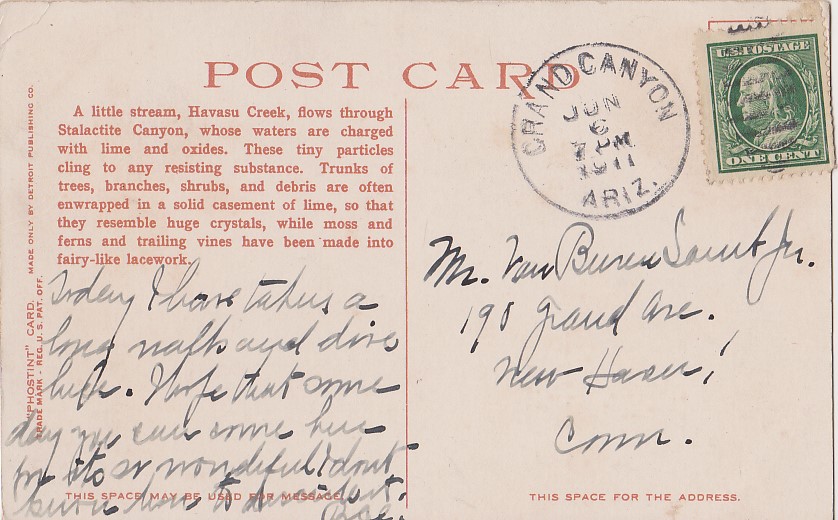 POST CARD
A little stream, Havasu Creek, flows through
Stalactite Canyon, whose waters are charged
with lime and oxides. These tiny particles
cling to any resisting substance. Trunks of
trees, branches, shrubs, and debris are often
enwrapped in a solid casement of lime, so that
they resemble huge crystals, while moss and
ferns and trailing vines have been made into
fairy-like lacework.
"PHOSTINT" CARD. MADE ONLY BY DETROIT PUBLISHING CO.
TRADE MARK - REG. U. S. PAT. OFF.
Today I have taken a
long walk and
here. I hope that some
day you can come here
for its so wonderful I dont
know how to describe it.
THIS SPACE MAY BE USED FOR MESSAGE.
GRAND CANYON
JUN
6
7 PM
1911
ARIZ.
U.S. POSTAGE
ONE CENT
Mr. Van Buren Jr.
198 Grand Ave.
New Haven,
Conn.
THIS SPACE FOR THE ADDRESS.